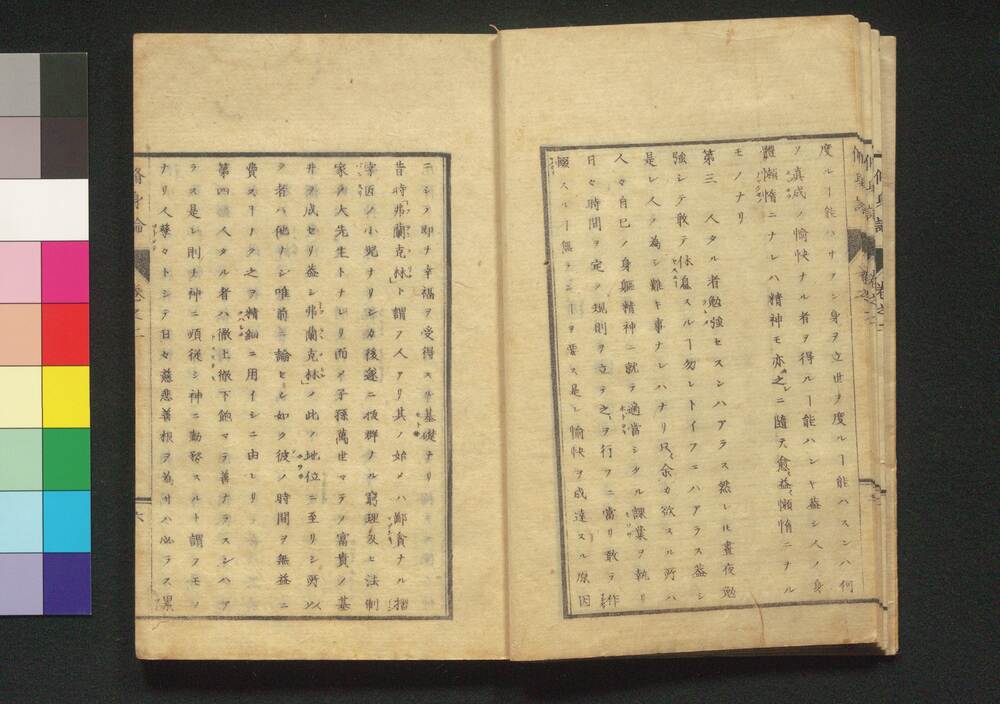 度ルヿ能ハサラン身ヲ立世ヲ度ルヿ能ハスンハ何
ソ真成ノ愉快ナル者ヲ得ルヿ能ハンヤ蓋シ人ノ身
體懶惰ニナレハ精神モ亦之レニ随テ愈益懶惰ニナル
モノナリ
第三 人タル者勉強セスンハアラス然レ𪜈晝夜勉
強シテ敢テ休息スルヿ勿レトイフニハアラス蓋シ
是レ人ノ為シ難キ事ナレハナリ只余カ欲スル所ハ
人々自己ノ身軀精神ニ就テ適當シタル課業ヲ執リ
日々時間ヲ定メ規則ヲ立テ之ヲ行フニ當リ敢テ作
輟スルヿ無ランヿヲ要ス是レ愉快ヲ成達スル原因
ニシテ即ナ幸福ヲ受得スル基礎ナリ
昔時「弗蘭克林」ト謂フ人アリ其ノ始メハ鄙貪ナル摺
字匠ノ小児ナリシカ後遂ニ抜群ノル窮理及ヒ法制
家ノ大先生トナレリ而メ子孫萬世マテノ富貴ノ基
井ヲ成セリ蓋シ弗蘭克林」ノ此ノ地位ニ至リシ所以
ヲ者ハ他ナシ唯前ニ論セシ如ク彼ノ時間ヲ無益ニ
費スヿナク之ヲ精細ニ用イシニ由レリ
第四 人タル者ハ徹上徹下飽マテ善ナラスンハア
ラス是レ則ナ神ニ順従シ神ニ勤務スルト謂フモノ
ナリ人孳々トシテ日々慈悲善根ヲ為サハ必ラス累
脩身論
巻之二
六